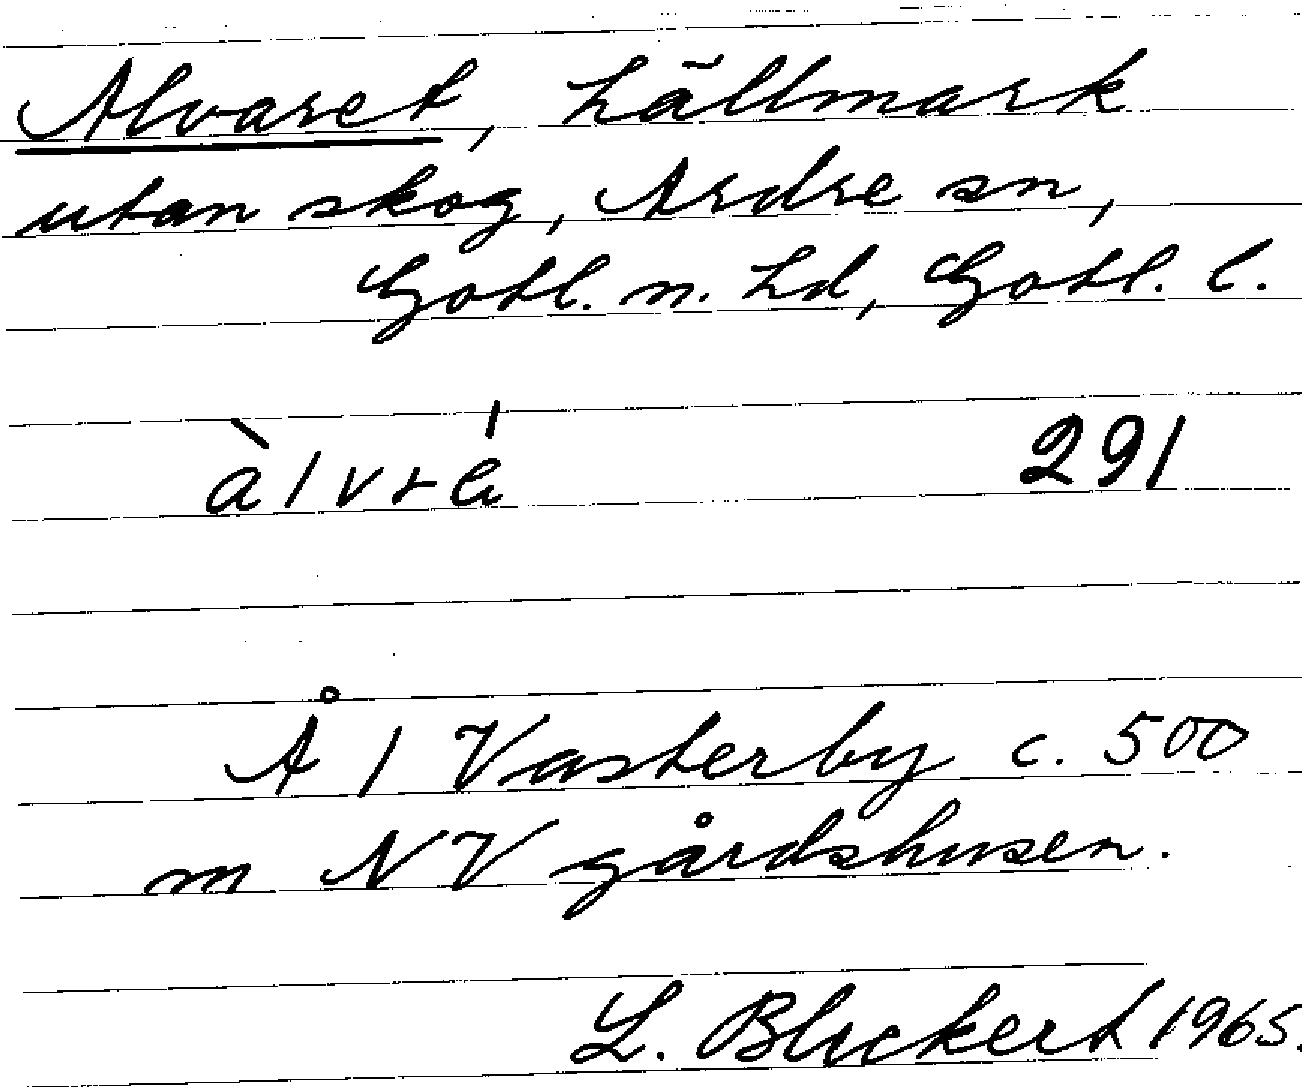 Alvaret, hällmark
utan skog, Ardre sn,
Gotl. n. hd, Gotl. l.
291
Å 1 Västerby c. 500
m NV gårdshusen.
L. Blickert 1965.